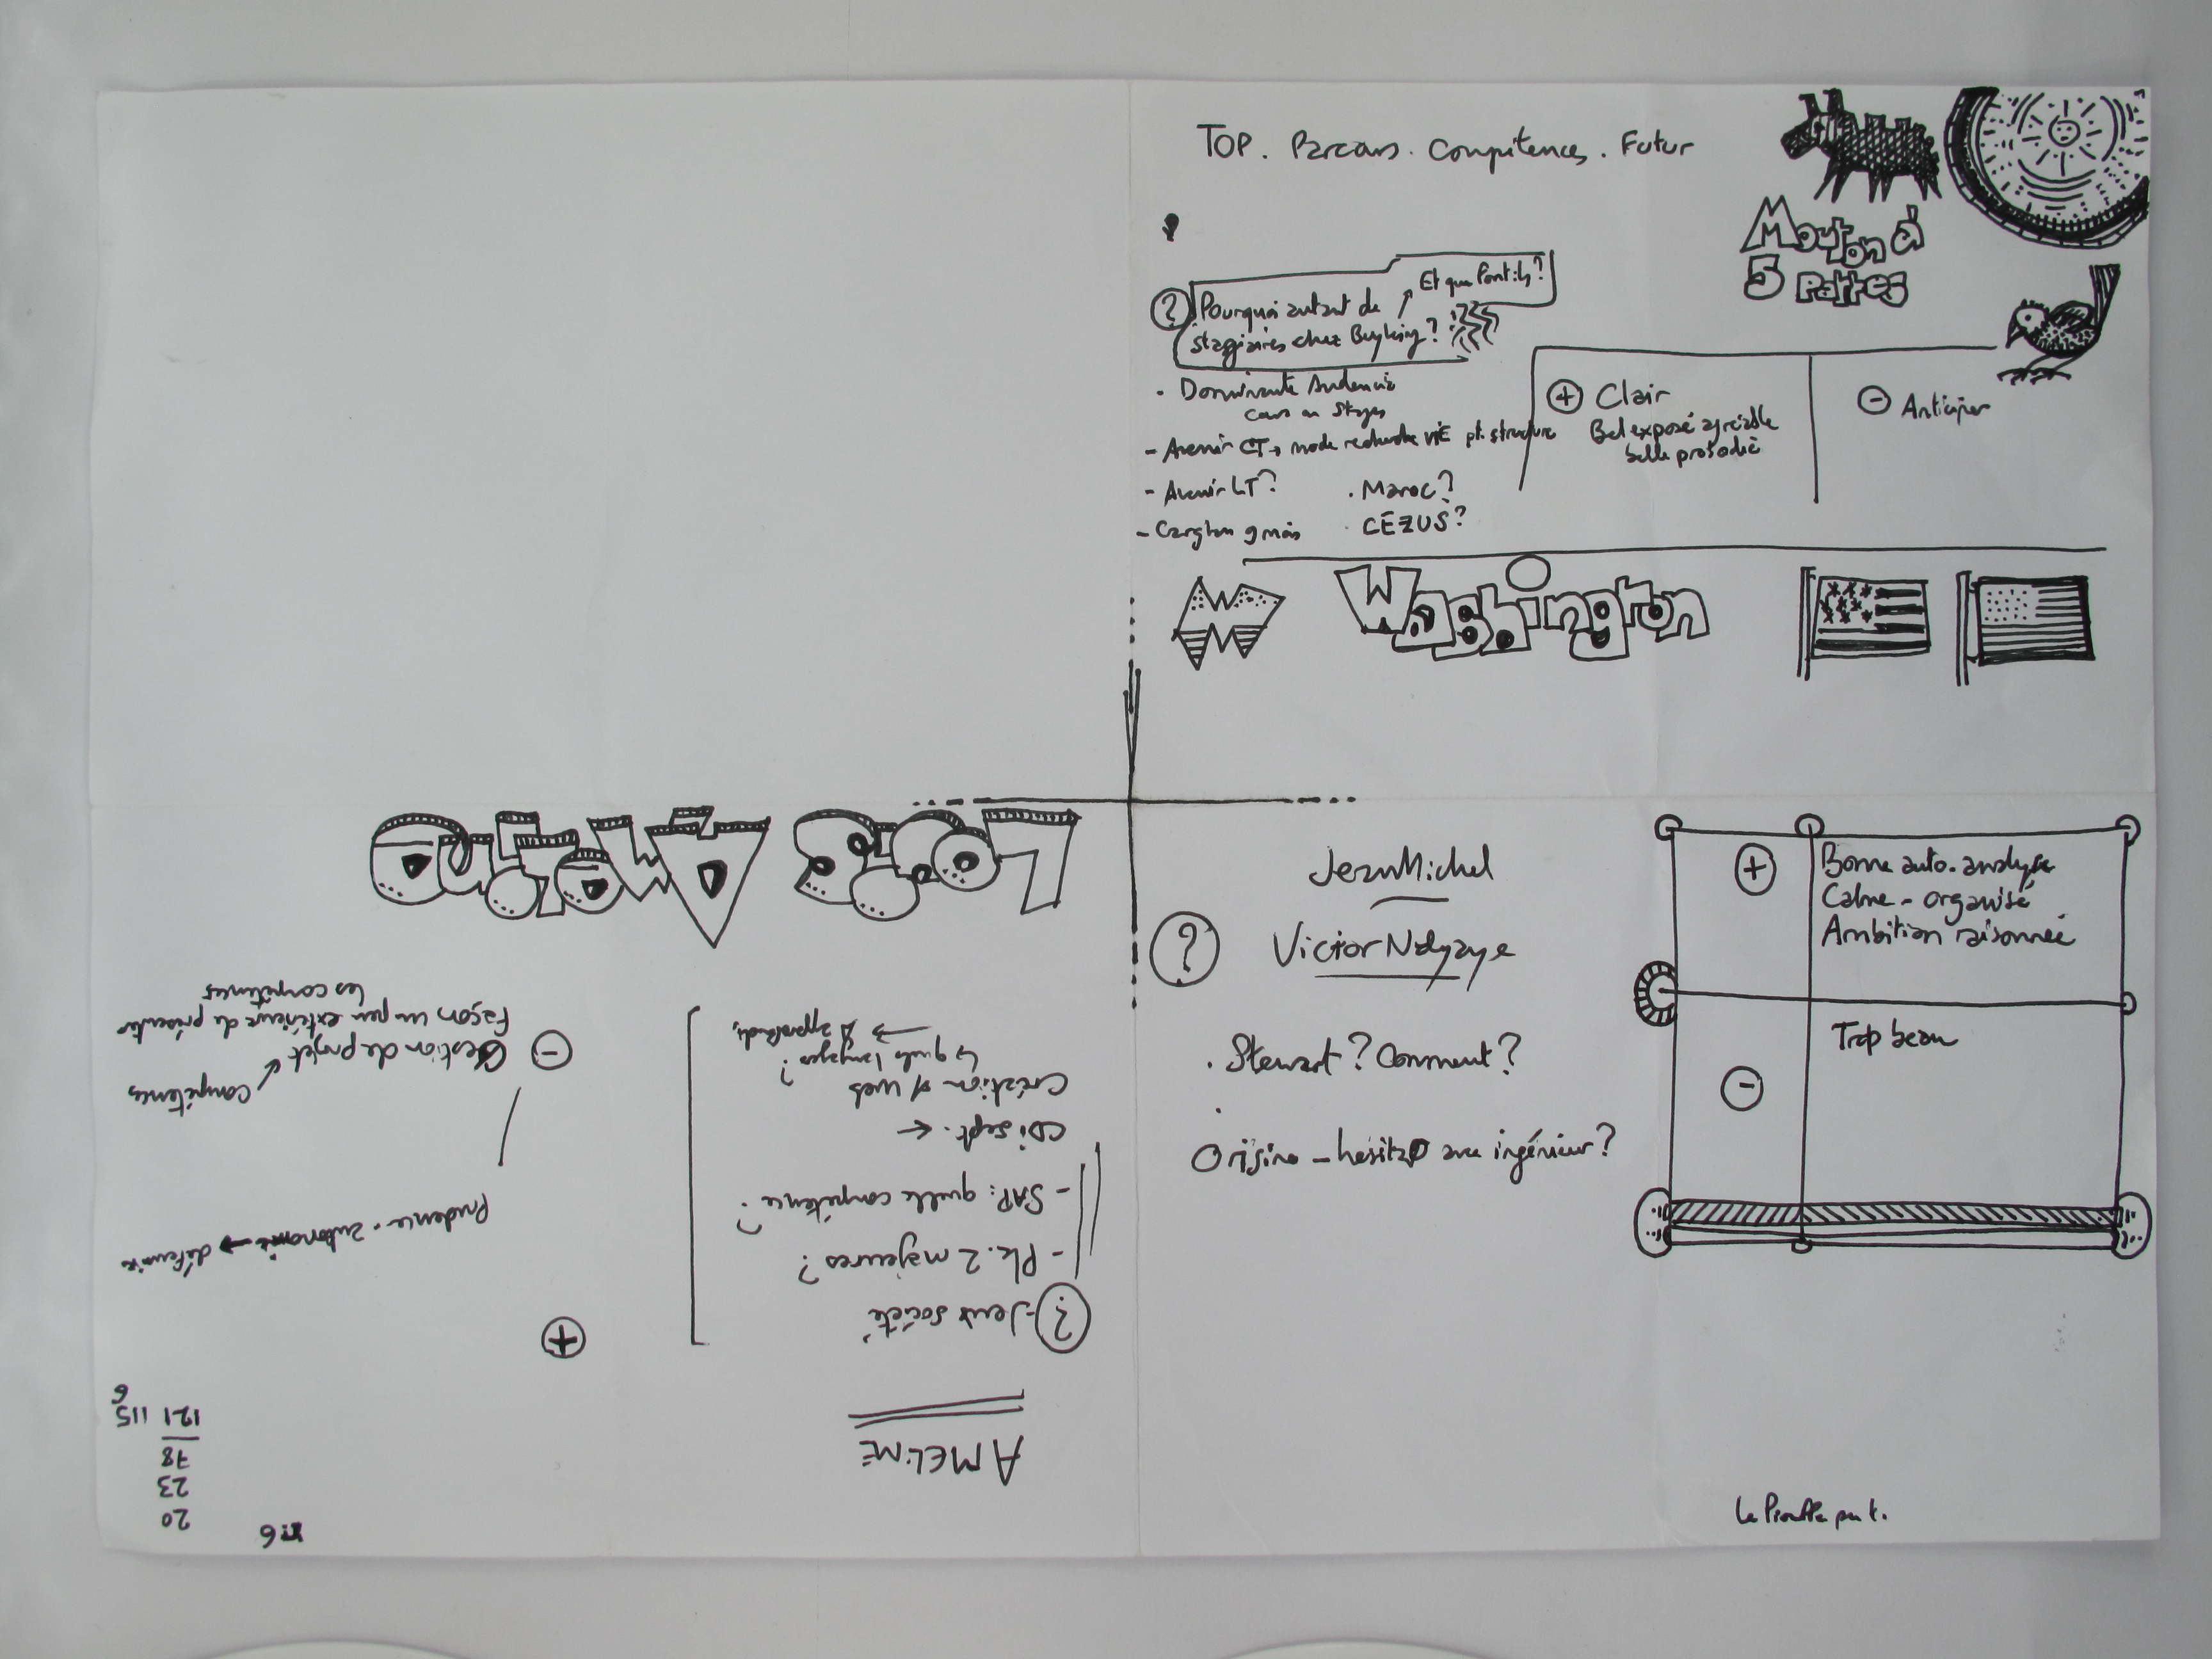 TOP. Parcours. Compétences. Futur
Mouton à
5 pattes
? Pourquoi autant de
stagiaires chez Buyking?
Et que font-ils?
. Dominante Audencia
cours ou stages
- Avenir CT → mode recherche VIE pt. structure
- Avenir LT?
. Maroc?
. CEZUS?
9 mois
+ Clair
Bel exposé agréable
belle prosodie
- Anticiper
Washington
Jean Michel
? Victor Ndyaye
. Stewart? Comment?
Origine - hésitaº avec ingénieur?
+ Bonne auto-analyse
Calme - organisé
Ambition raisonnée
- Trop beau
AMELINE
? - Jeux société
- Pk. 2 majeures?
- SAP: quelle compétence?
CDI sept. ←
Création st web
↳ quels langages?
→ approfondi
+
Prudence - autonomie → définir
Compétences
- Gestion de projet
Façon un peu extérieure de présenter
les compétences
n:6
20
23
78
121 115
6